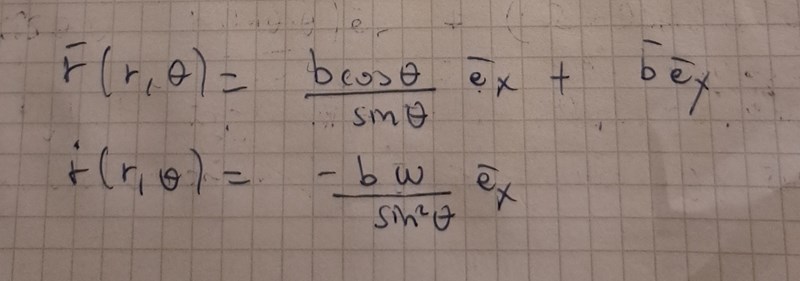 r̄(r, θ) = b cosθ / sinθ ē_x + b̄ ē_y
ṙ(r, θ) = - b ω / sin²θ ē_x